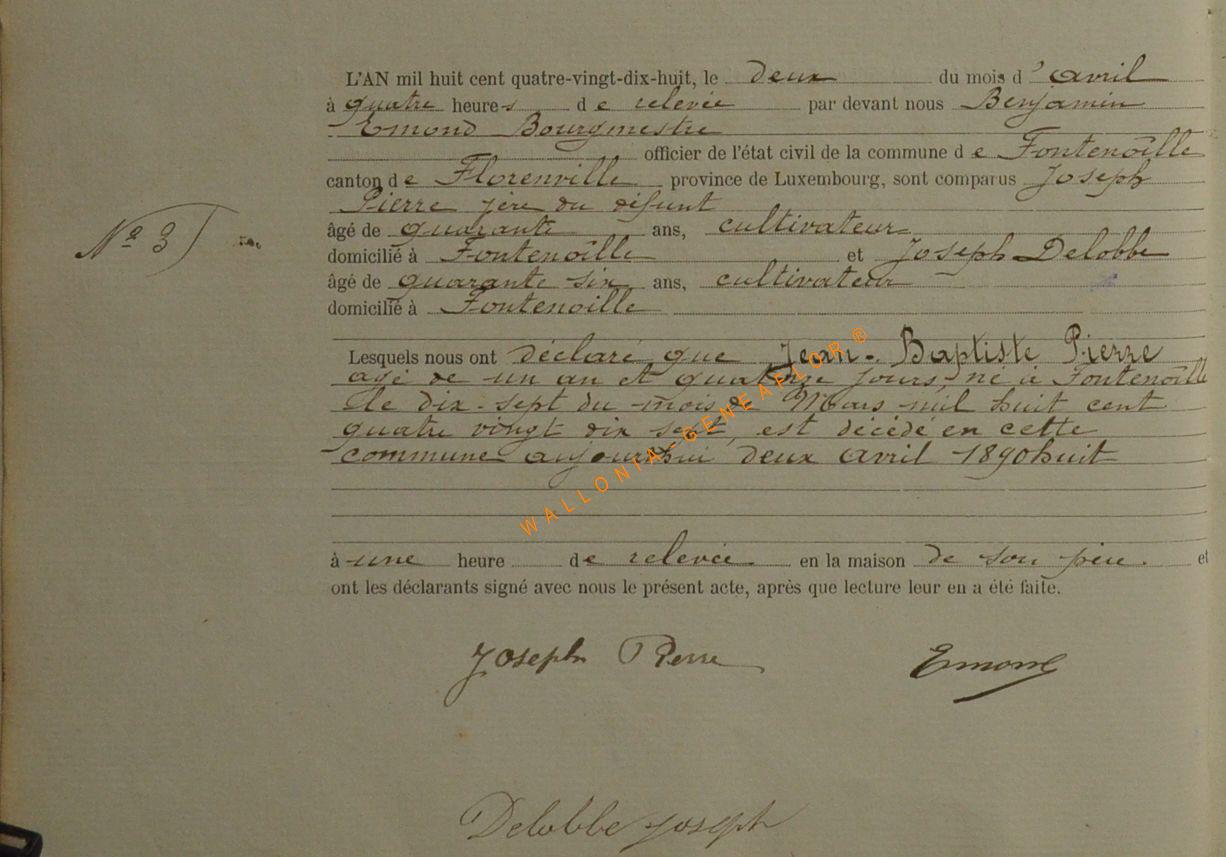 L'AN mil huit cent quatre-vingt-dix-huit, le deux du mois d'avril
à quatre heures de relevée par devant nous Benjamin
Emond Bourgmestre
officier de l'état civil de la commune de Fontenoille
canton de Florenville province de Luxembourg, sont comparus Joseph
Pierre père du défunt
Nº 3
âgé de quarante ans, cultivateur
domicilié à Fontenoille et Joseph Delobbe
âgé de quarante six ans, cultivateur
domicilié à Fontenoille
Lesquels nous ont déclaré que Jean-Baptiste Pierre
agé de un an et quatorze jours, né à Fontenoille
le dix-sept du mois de Mars mil huit cent
quatre vingt dix sept, est décédé en cette
commune aujourd'hui deux avril 1890huit
WALLONIA-GENEAFLOR®
à une heure de relevée en la maison de son père. et
ont les déclarants signé avec nous le présent acte, après que lecture leur en a été faite.
Joseph Pierre Emond
Delobbe Joseph